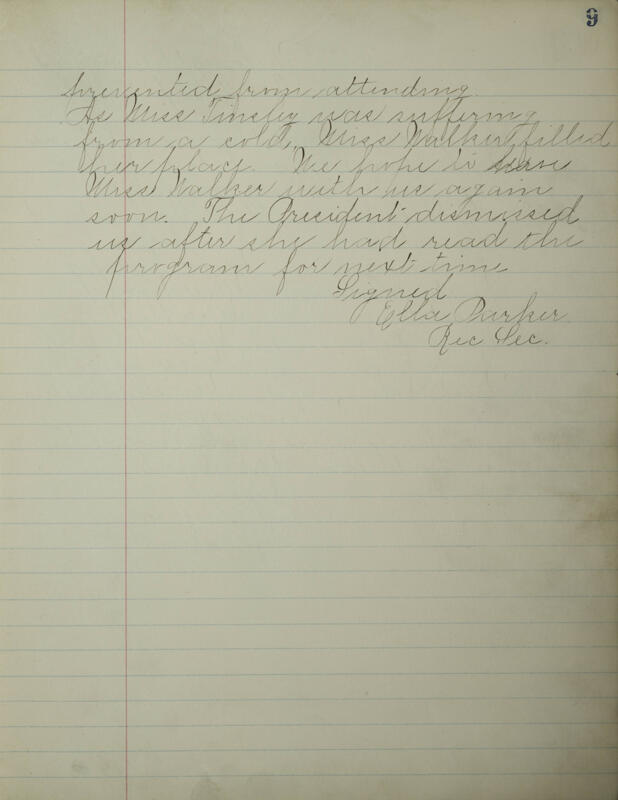 9
prevented from attending.
As Miss Tinsley was suffering
from a cold, Miss Walker filled
her place. We hope to have
Miss Walker with us again
soon. The President dismissed
us after she had read the
program for next time
Signed
Ella Parker
Rec Sec.